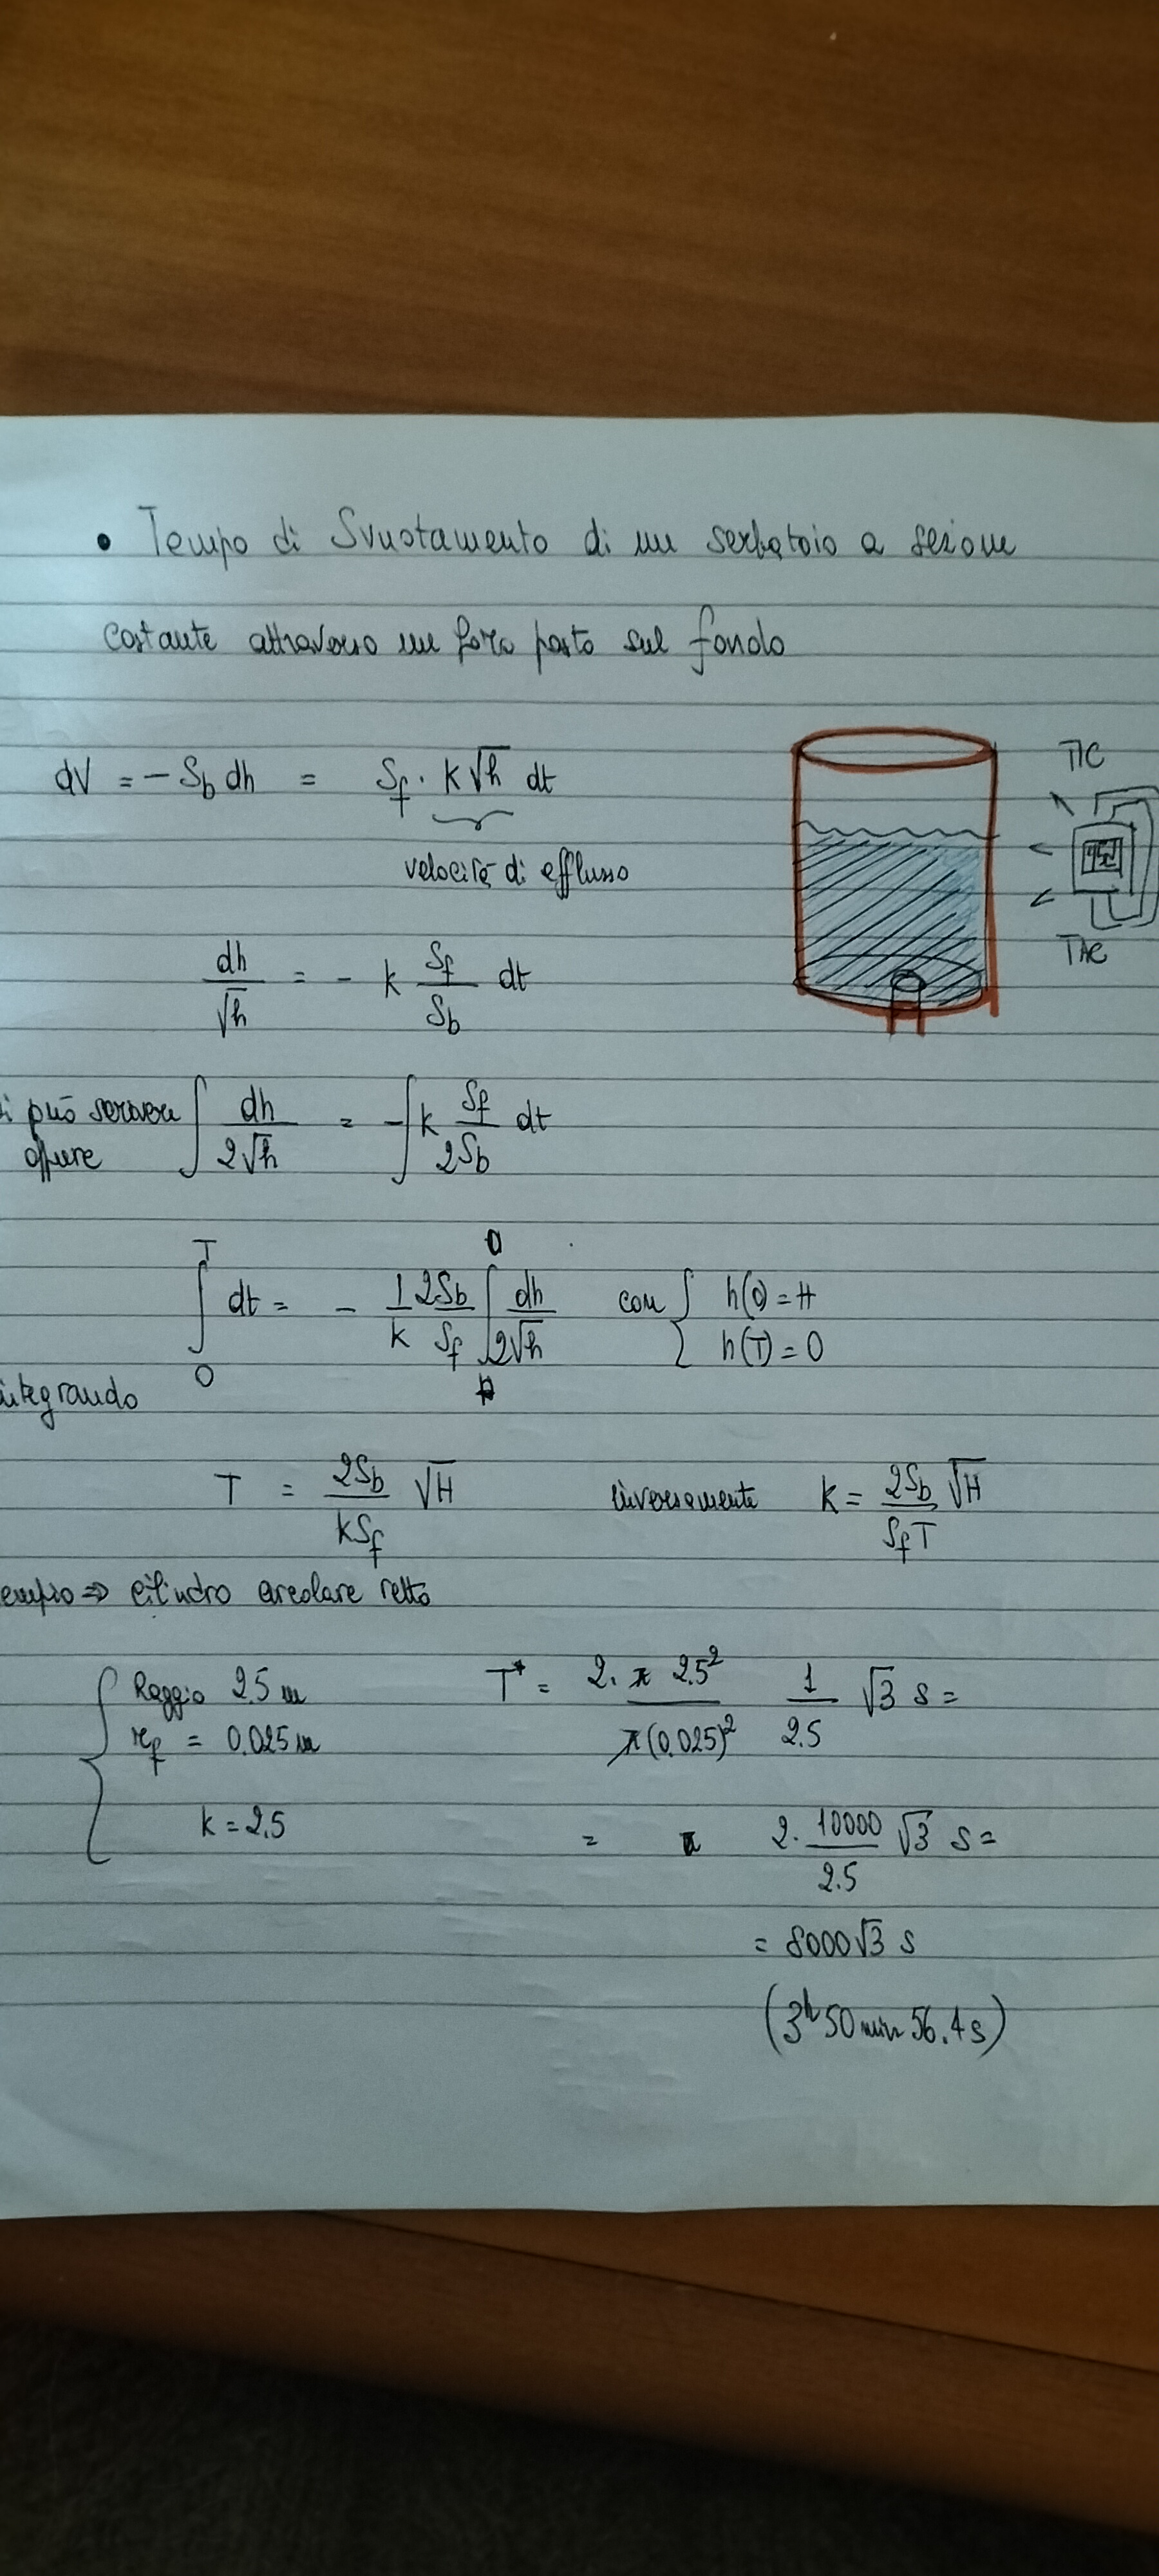 • Tempo di Svuotamento di un serbatoio a sezione
costante attraverso un foro posto sul fondo
dV = - S_b dh = S_f · k√h dt
velocità di efflusso
TIC
TAC
dh/√h = - k S_f/S_b dt
i può scrivere ∫ dh/2√h = -∫ k S_f/2S_b dt
oppure
∫_0^T dt = - 1/k 2S_b/S_f ∫_H^0 dh/2√h con { h(0) = H
h(T) = 0
integrando
T = 2S_b/kS_f √H inversamente k = 2S_b/S_f T √H
empio ⇒ cilindro circolare retto
{ Raggio 2.5 m
r_f = 0.025 m
k = 2.5
T* = 2. π 2.5²/π(0.025)² 1/2.5 √3 s =
= 2. 10000/2.5 √3 s =
= 8000√3 s
(3h 50 min 56.4 s)